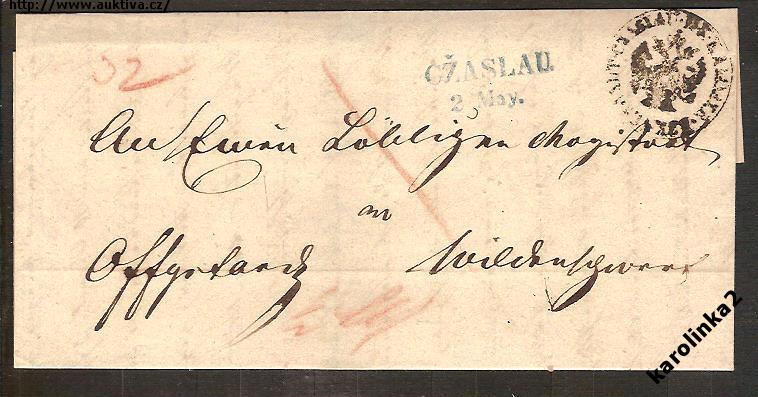 http://www.auktiva.cz/
32
CŽASLAU.
2. May.
An Einen Löbligen Magistrat
in
Offgefardz Wildenschwert
karolinka2